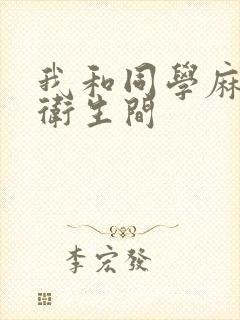 我和同學麻
衛生間
李宏發